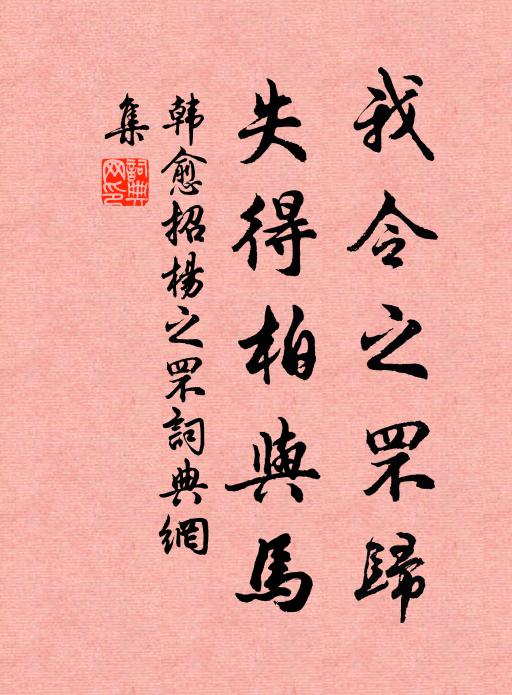 我令之罘歸
失得柏與馬
韩愈招楊之罘詞典網
集
詞典網印